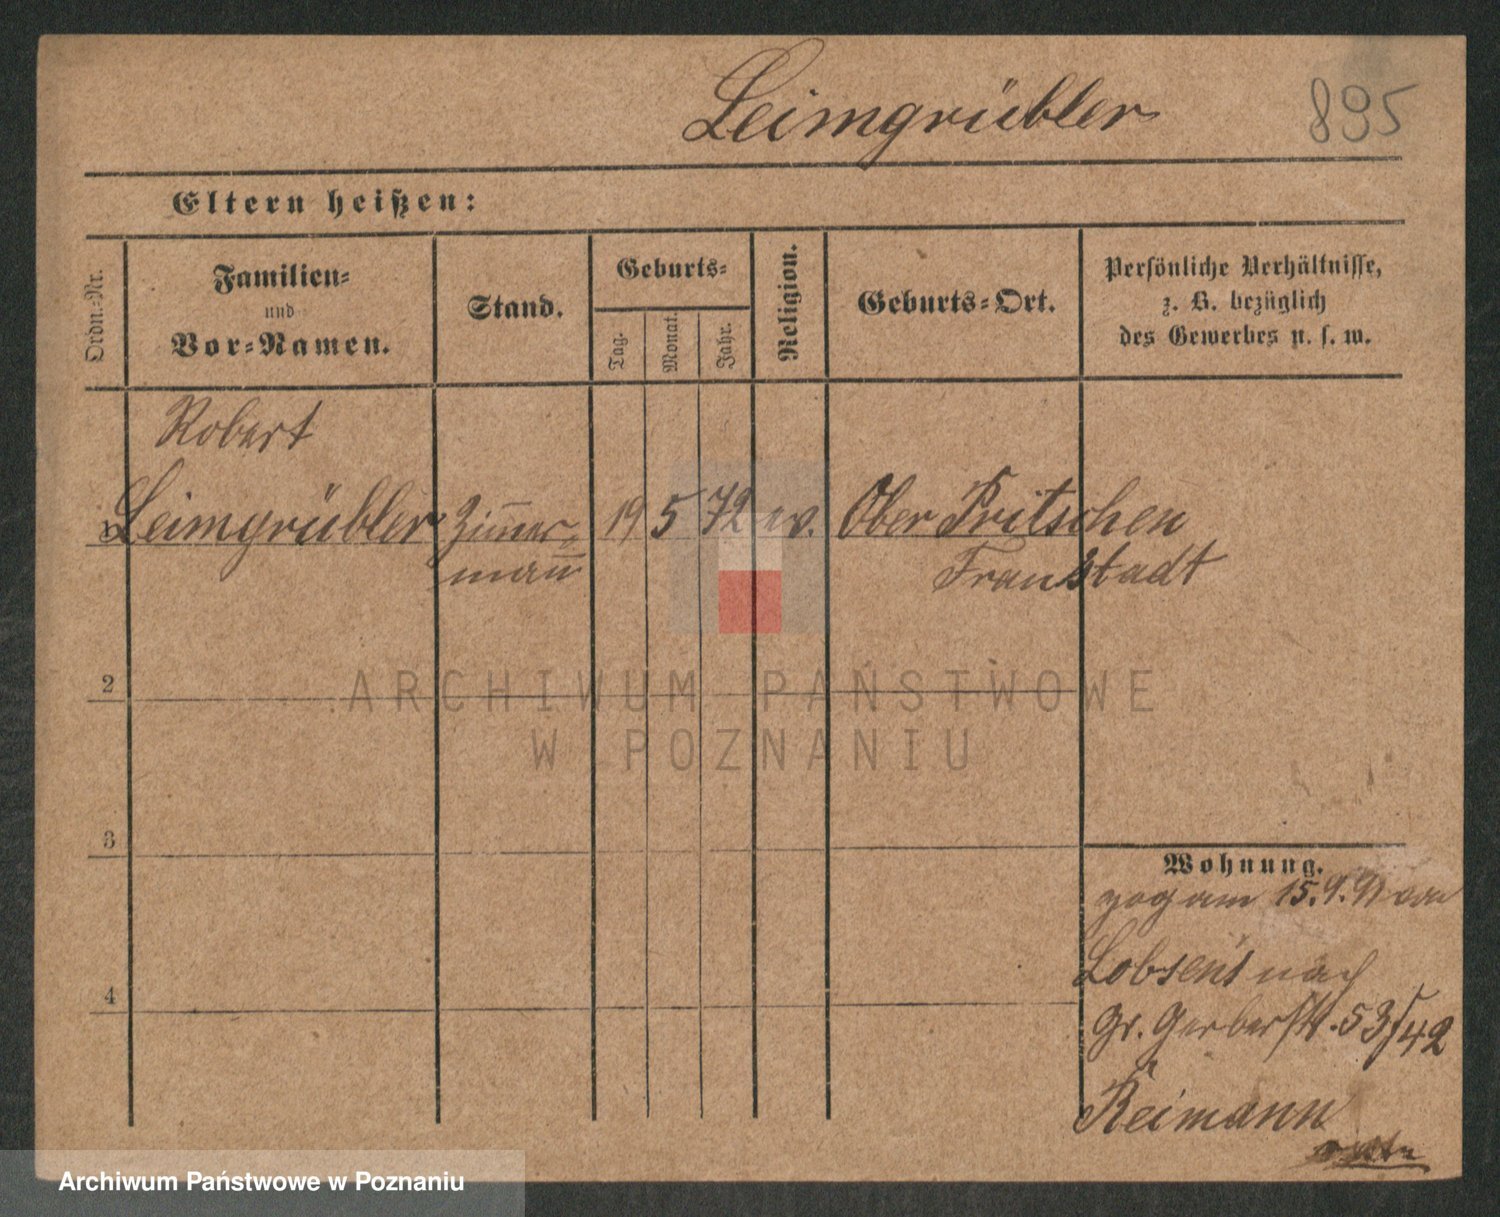 Leimgrübler
895
Eltern heißen:
Ordn.-Nr.
Familien-
und
Vor-Namen.
Stand.
Geburts-
Tag.
Monat.
Jahr.
Religion.
Geburts-Ort.
Persönliche Verhältnisse,
z. B. bezüglich
des Gewerbes u. s. w.
Robert
1 Leimgrübler Zimmer- 19 5 72 ev. Ober Pritschen
mañ Fraustadt
2
3
4
Wohnung.
zog am 15.9.91 von
Lobsens nach
Gr. Gerberstr. 53/42
Reimann
ARCHIWUM PAŃSTWOWE
W POZNANIU
Archiwum Państwowe w Poznaniu